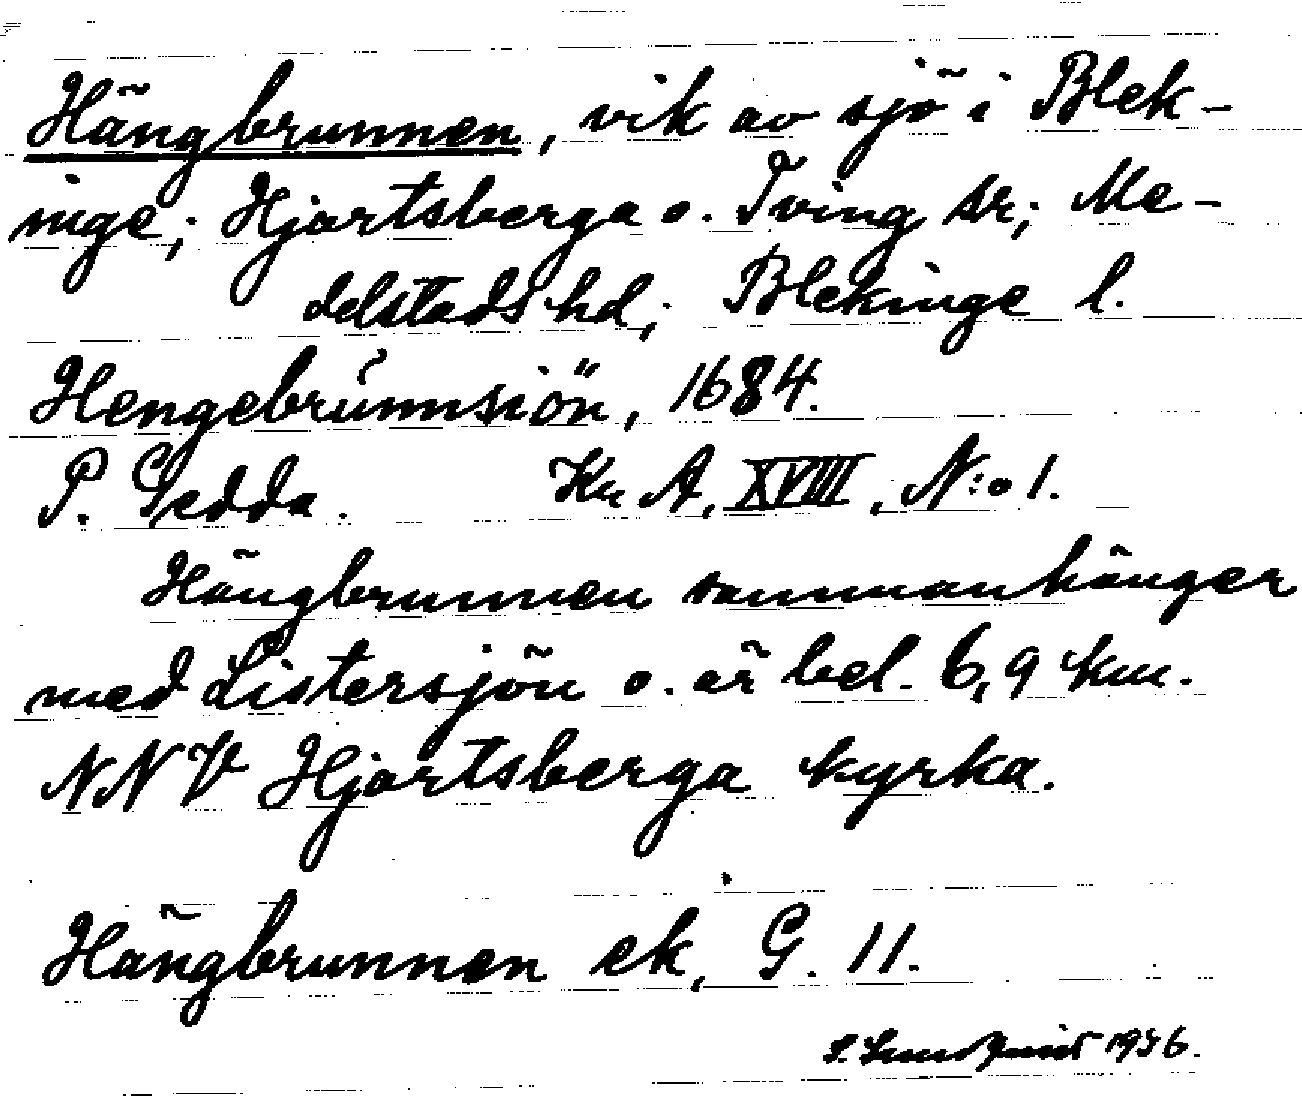 Hängbrunnen, vik av sjö i Blek-
inge; Hjortsberga o. Tving sr; Me-
delstads hd; Blekinge l.
Hengebrunnsiön, 1684.
P. Gedda. Kr A, XVIII, N:o 1.
Hängbrunnen sammanhänger
med Listersjön o. är bel. 6,9 km.
NNV Hjortsberga kyrka.
Hängbrunnen ek, G. 11.
S. Lundquist 1936.